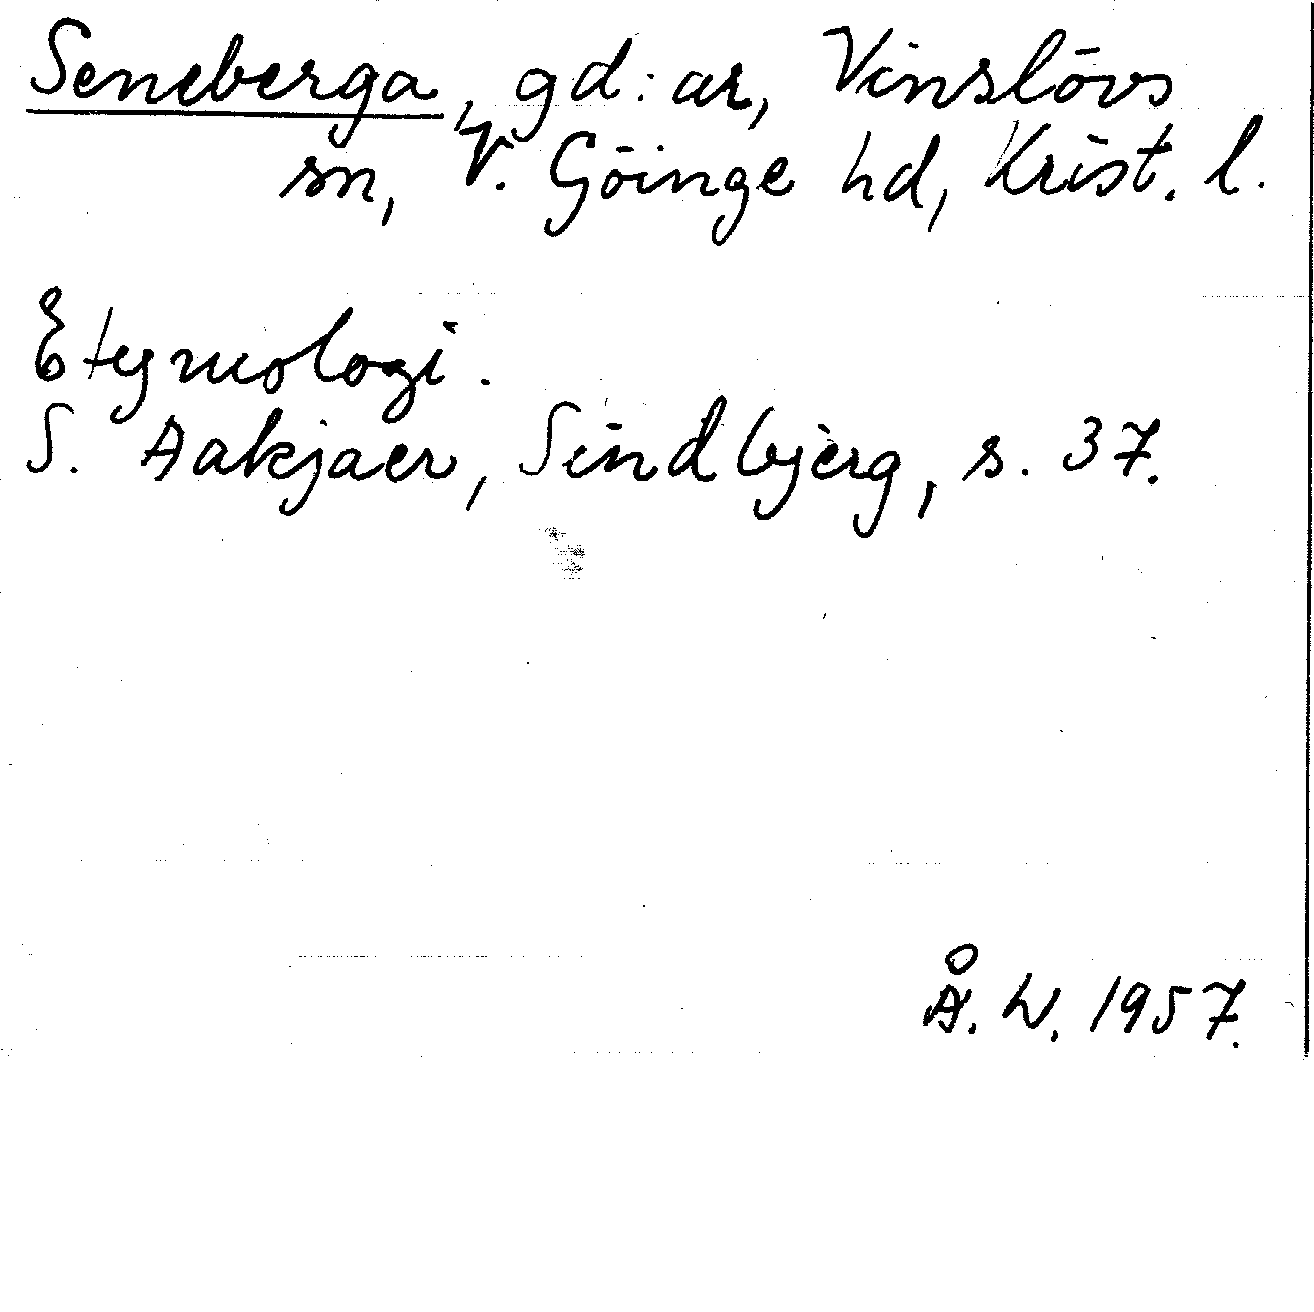 Seneberga, gd:ar, Vinslövs
sn, V. Göinge hd, Krist. l.
Etymologi.
S. Aakjaer, Sindbjerg, s. 37.
Å. W. 1957.